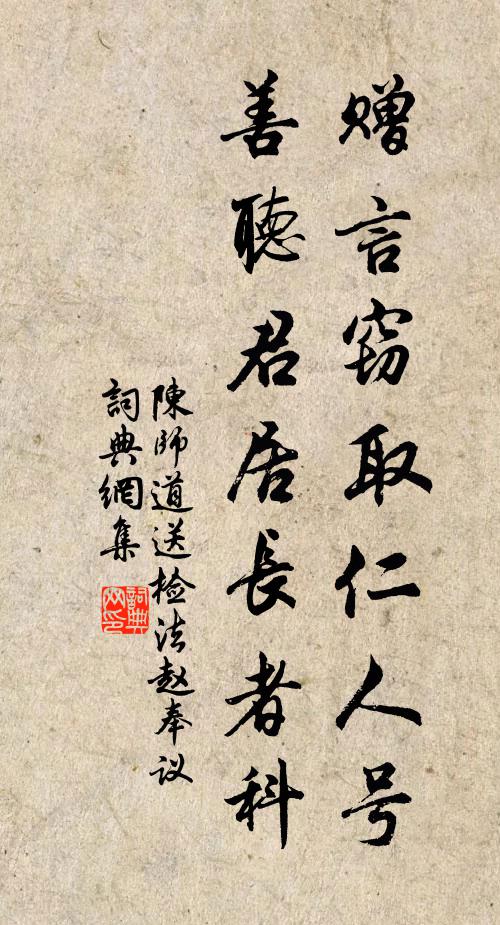 赠言窃取仁人号
善聽君居長者科
陳師道送检法赵奉议
詞典網集
詞典网印